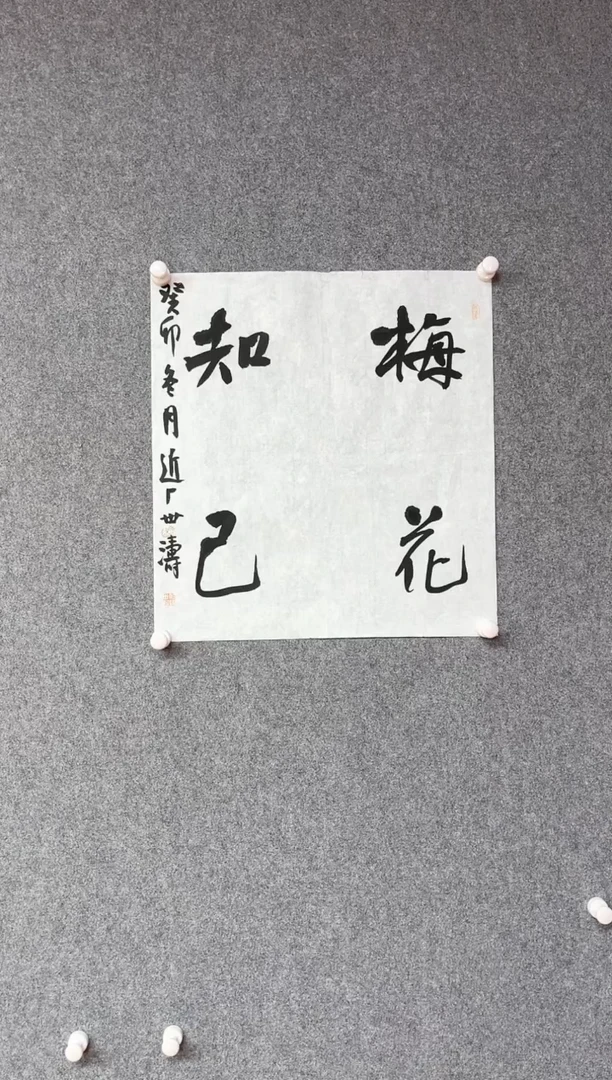 梅花
知己
癸卯冬月近厂世濤